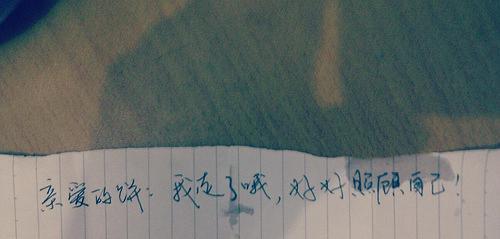 亲爱的饼：我走了哦，好好照顾自己！